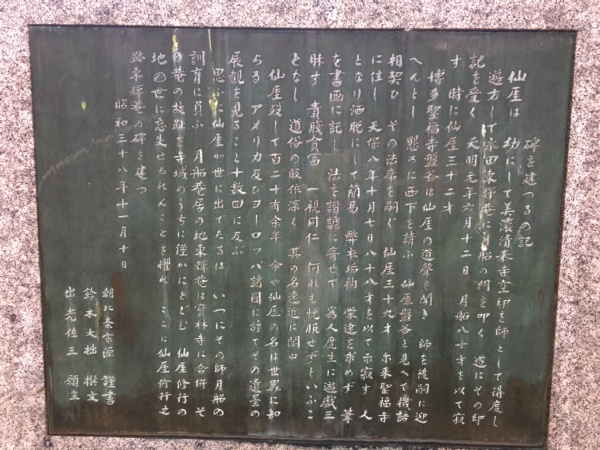 碑を建つるの記
仙厓は 幼にして美濃清泰寺空印を師として得度し
遊方して永田東輝菴に月船の門を叩く 遂にその印
記を受く 天明元年六月十二日 月船八十才を以て寂
す 時に仙厓三十二才
博多聖福寺盤谷は仙厓の道聲を聞き 師を後嗣に迎
へんとし 懇ろに西下を請ふ 仙厓盤谷と見へて機語
相契ひ その法席を嗣ぐ 仙厓三十九才 尓来聖福寺
に住し 天保八年十月七日八十八才を以て示寂す 人
となり洒脱にして簡易 弊衣垢衲 栄達を求めず 筆
を書画に記し 法を諧謔に寄せて 為人度生に遊戯三
昧す 貴賤貧富 一視同仁 何れも悦服せずといふこ
となし 道俗の皈依深く 其の名遠近に聞ゆ
仙厓歿して百二十有余年 今や仙厓の名は世界に知
らる アメリカ及びヨーロッパ諸国に於てその遺墨の
展観を見ること十数回に及ぶ
思ふに仙厓が世に出でたるは いつにその師月船の
訓育に負ふ 月船菴居の地東輝菴は寳林寺に合併 そ
の菴の趾を寺域のうちに僅かにとどむ 仙厓修行の
地の世に忘失せられんことを懼れ ここに仙厓修行之
跡東輝菴の碑を建つ
昭和三十八年十一月十日
朝比奈宗源 謹書
鈴木大拙 撰文
出光佐三 願主